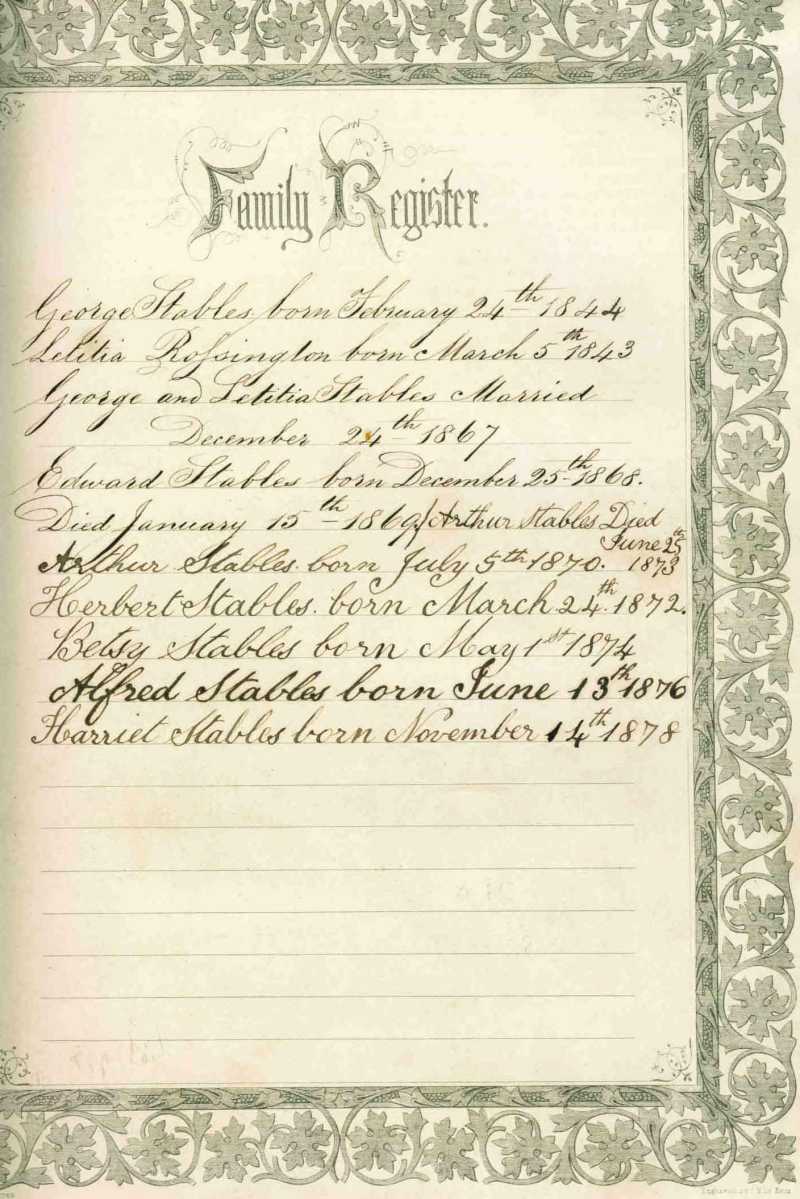 Family Register.
George Stables born February 24th 1844
Letitia Rossington born March 5th 1843
George and Letitia Stables Married
December 24th 1867
Edward Stables born December 25th 1868.
Died January 15th 1869/ Arthur Stables Died
June 25th
Arthur Stables born July 5th 1870. 1873
Herbert Stables. born March 24th. 1872.
Betsy Stables born May 1st 1874
Alfred Stables born June 13th 1876
Harriet Stables born November 14th 1878